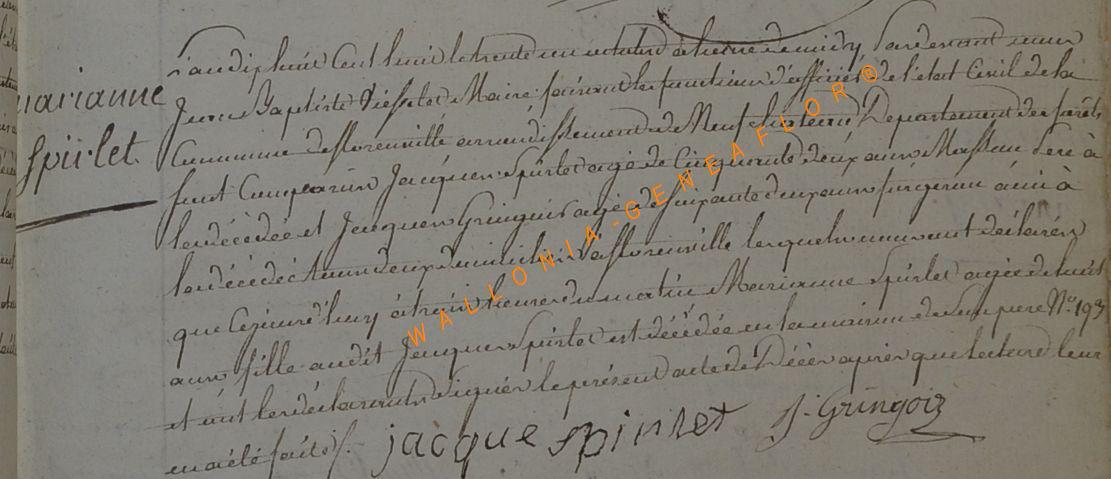 marianne
Spirlet
L'an dix huit cent huit le trente un octobre à heure de midy Pardevant nous
Jean Baptiste Maire faisant les fonctions d'officier de l'état Civil de la
Commune de florenville arrondissement de Neufchateau Departement des forêts
sont comparûs Jacques Spirlet agé de Cinquante deux ans Masson Pere à
la décédée et Jacques Gringoir agé de soixante deux ans ami à
la décédée tous deux domiciliés à florenville lesquels nous ont déclarés
que cejourd'huy à trois heures du matin Marianne Spirlet agée de huit
ans fille audit Jacques Spirlet est décédée en la maison de son pere No. 193
et ont les déclarants signés le présent acte de Décès après que lecture leur
en a été faite
jacque spirlet J: Gringoir
WALLONIA-GENEAFLOR®